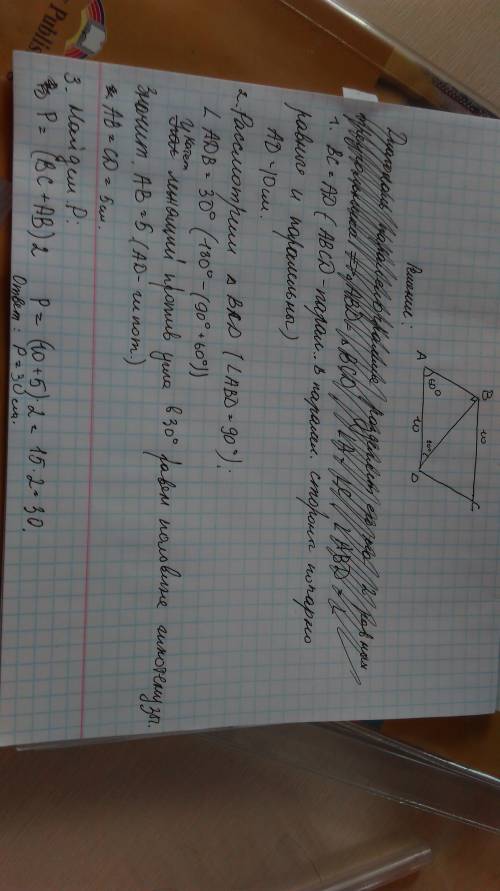 Publis
Решение:
Диагональ параллелограмма разделяет его на 2 равных
треугольника ABD = BCD
1. BC = AD (ABCD - парал.. в паралел. стороны попарно
равны и паралельны)
AD = 10 см.
2. Рассмотрим △ BAD (∠ABD = 90°):
∠ADB = 30° (180° - (90° + 60°))
катет лежащий против угла в 30° равен половине гипотенузы.
Значит AB = 5 (AD - гипот.)
AB = CD = 5 см.
3. Найдем P:
P = (BC + AB) 2 P = (10 + 5) 2 = 15 · 2 = 30.
Ответ: P = 30 см.
A
B
C
D
60°
10
10
30°